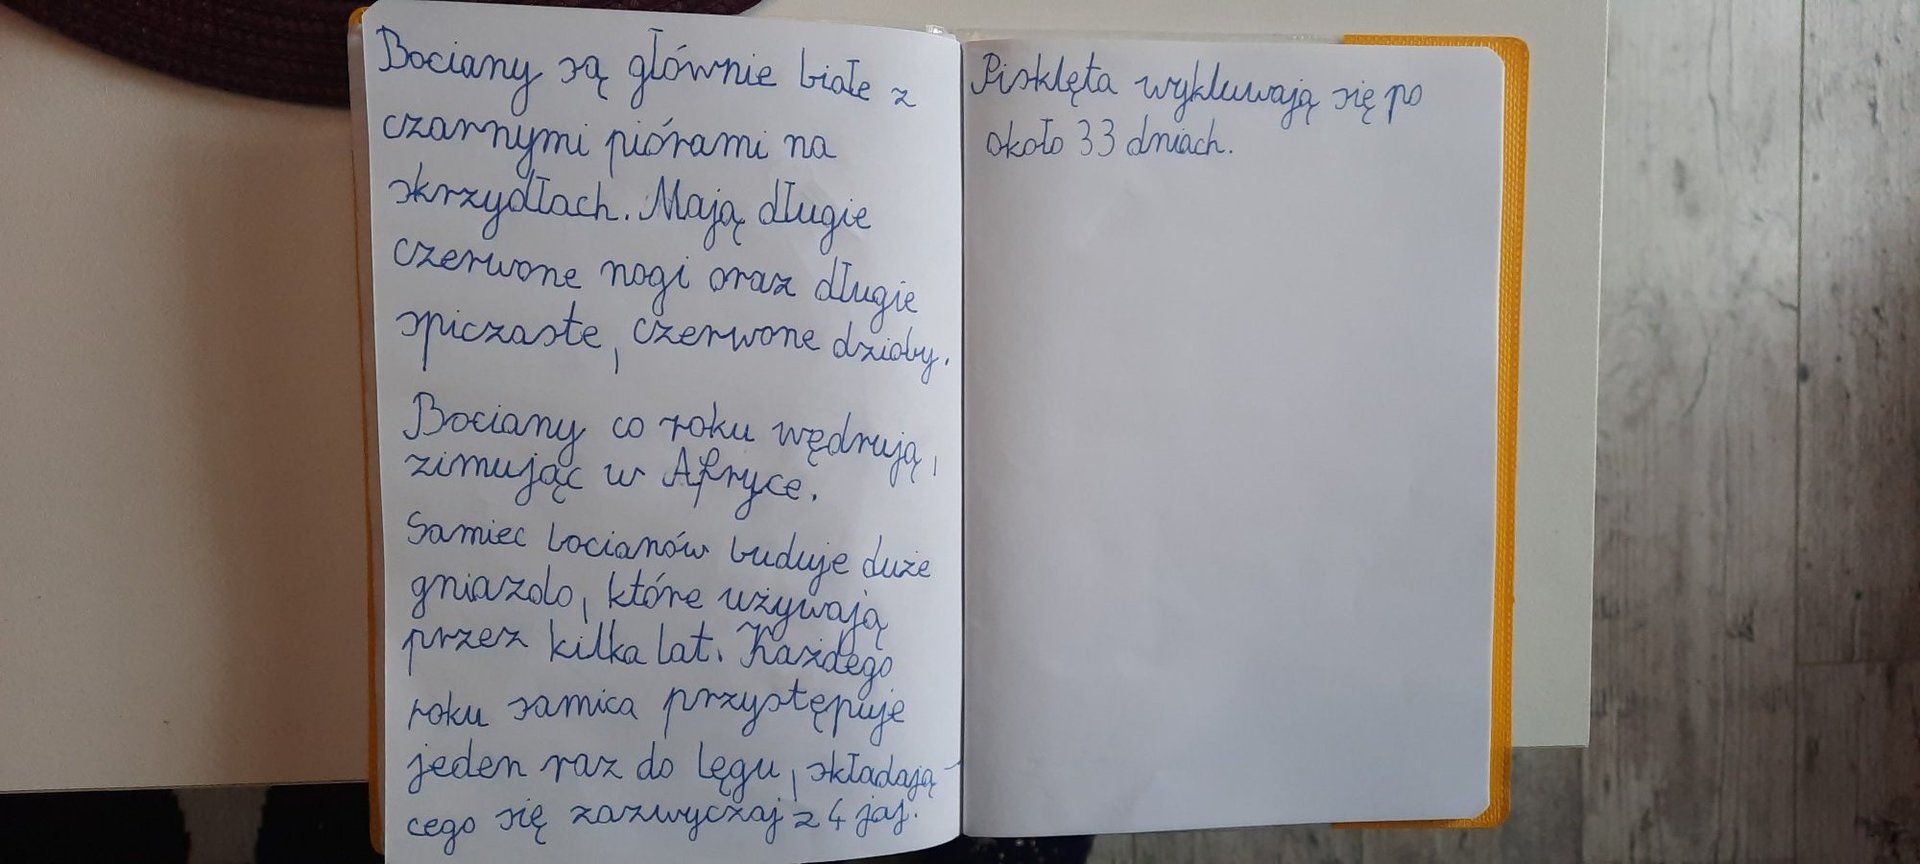 Bociany są głównie białe z
czarnymi piórami na
skrzydłach. Mają długie
czerwone nogi oraz długie
spiczaste, czerwone dzioby.
Bociany co roku wędrują,
zimując w Afryce.
Samiec bocianów buduje duże
gniazdo, które używają
przez kilka lat. Każdego
roku samica przystępuje
jeden raz do lęgu, składają-
cego się zazwyczaj z 4 jaj.
Pisklęta wykluwają się po
około 33 dniach.